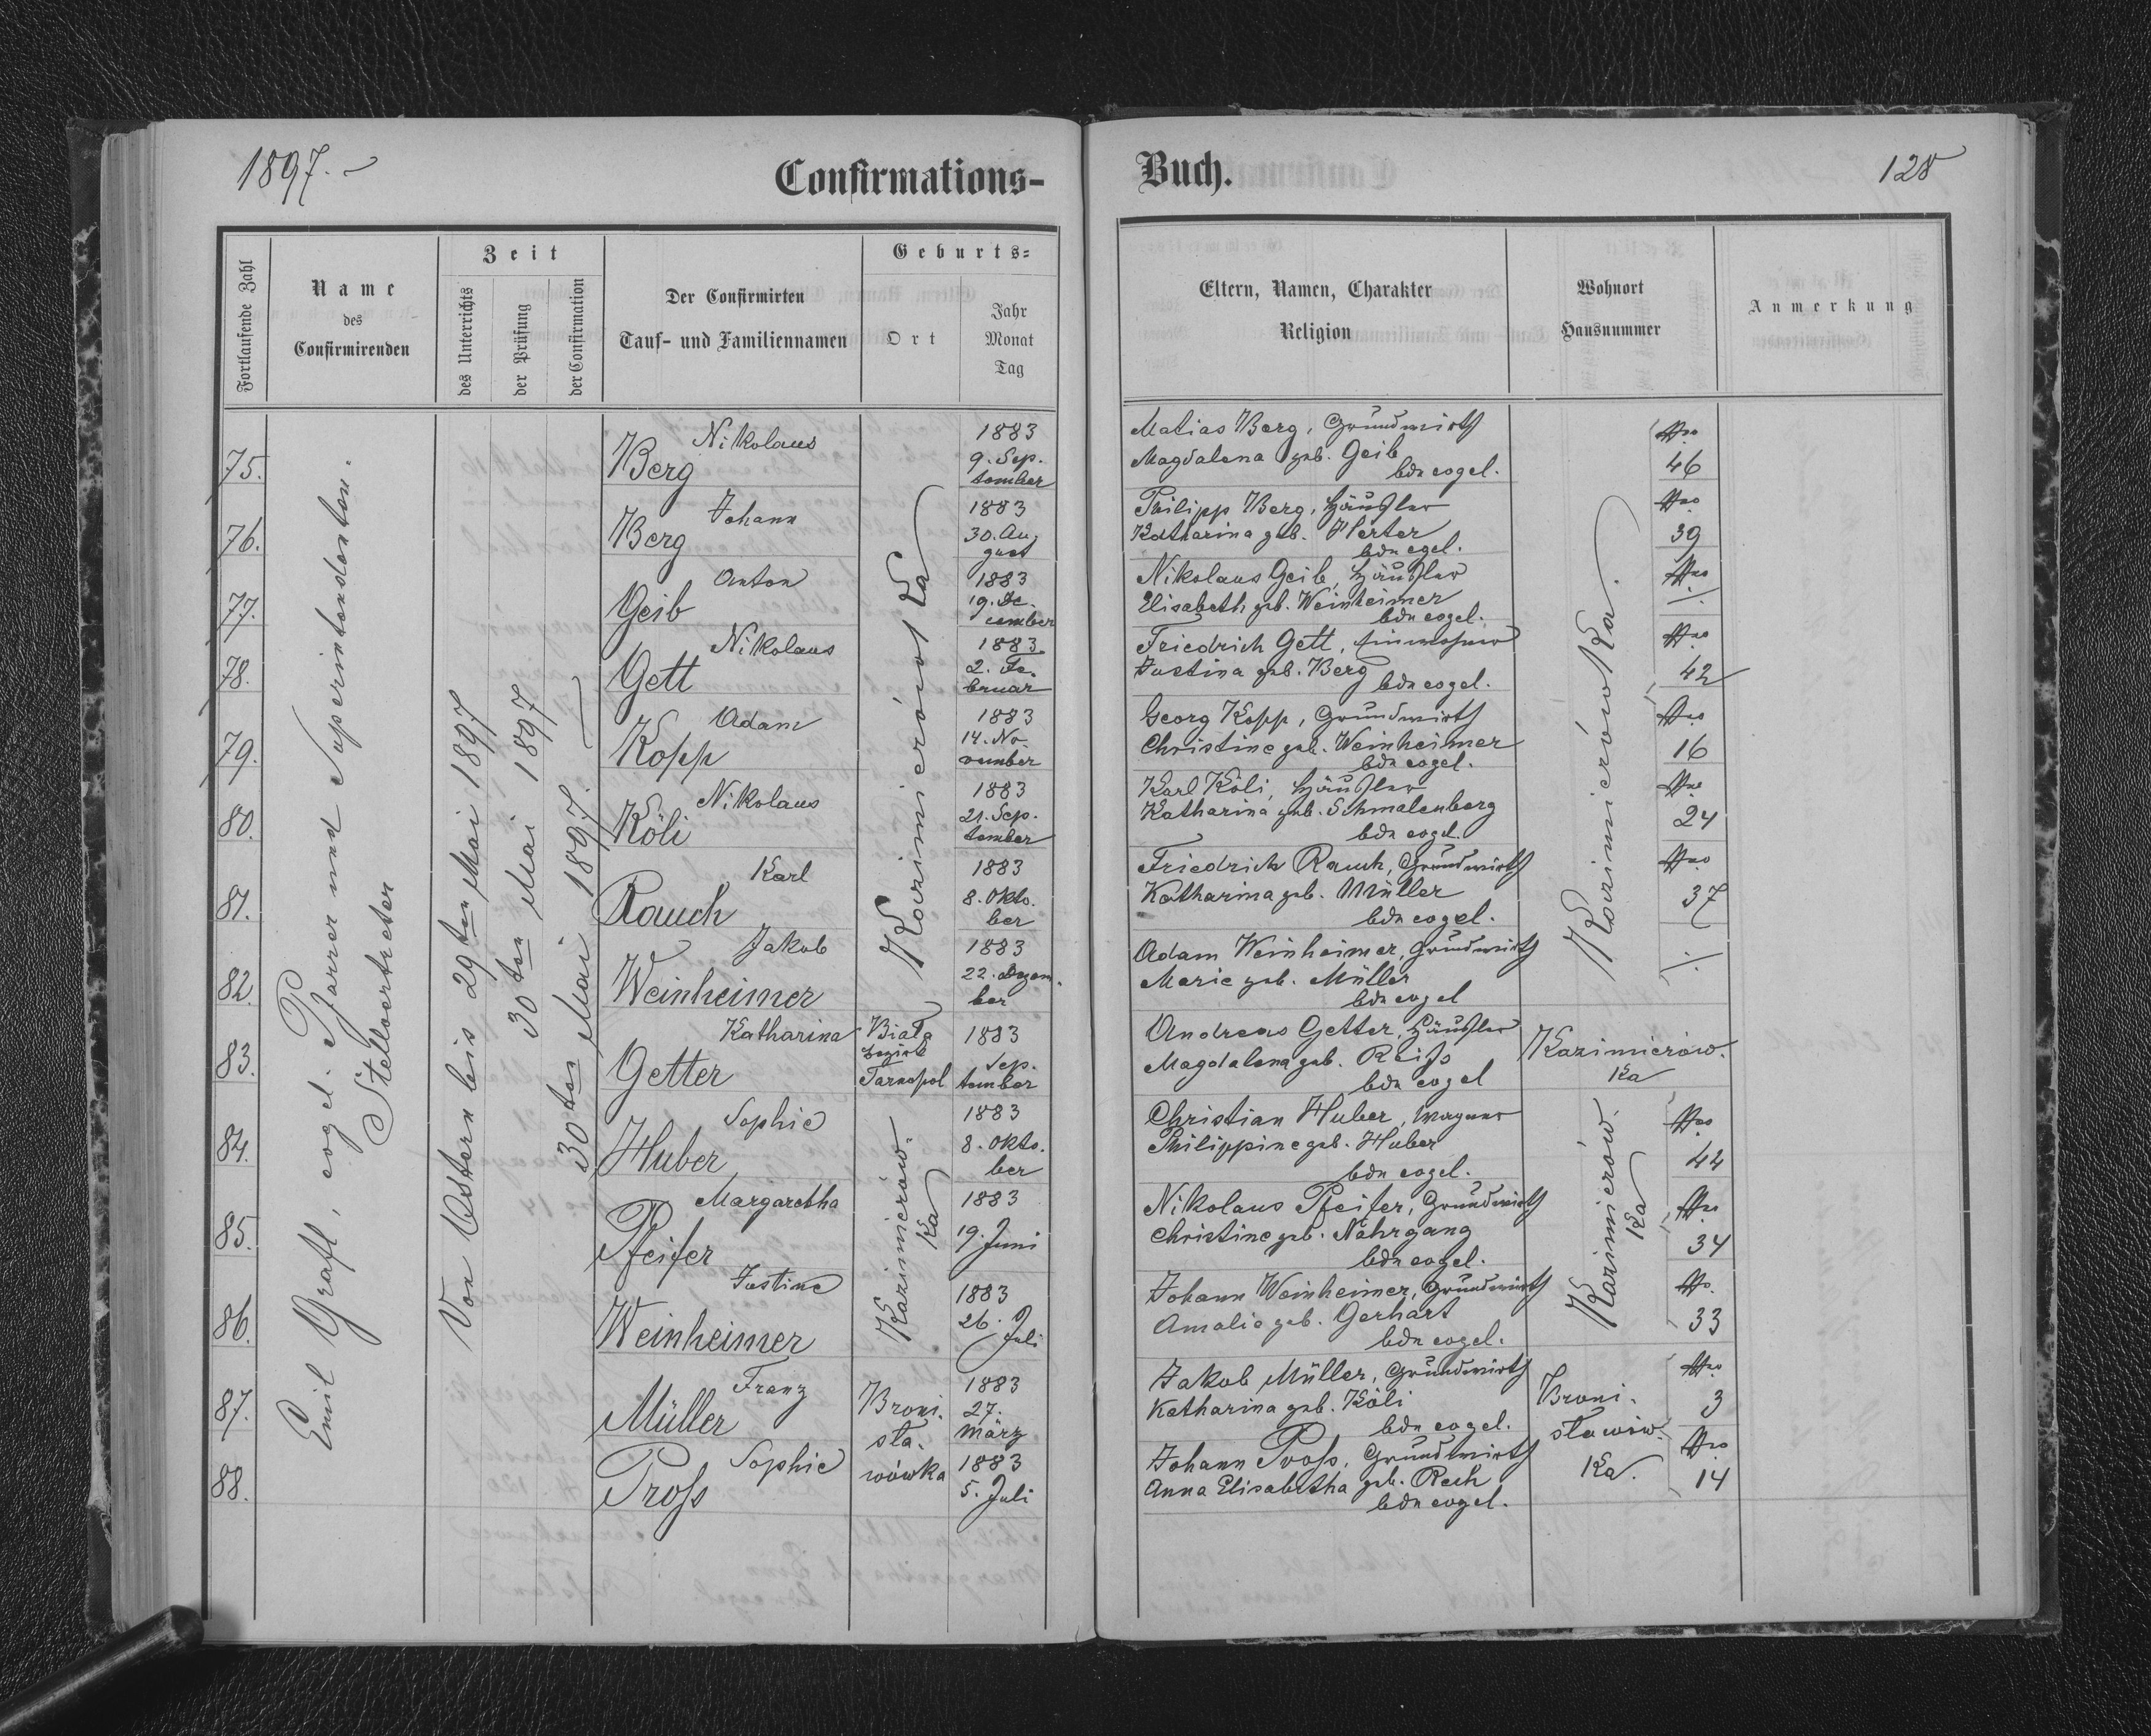 1897.
Confirmations-
Buch.
128
Fortlaufende Zahl
Name
des
Confirmirenden
Zeit
des Unterrichts
der Prüfung
der Confirmation
Der Confirmirten
Tauf- und Familiennamen
Geburts-
Ort
Jahr
Monat
Tag
Eltern, Namen, Charakter
Religion
Wohnort
Hausnummer
Anmerkung
Emil Grafl, evgel. Pfarrer und Superintendenten-
Stellvertreter
Von Ostern bis 29ten Mai 1897
30ten Mai 1897
30ten Mai 1897.
Kazimierówka
Kazimierówka.
75.
Nikolaus
Berg
1883
9. Sep-
tember
Matias Berg, Grundwirth
Magdalena geb. Geib
bde evgel.
Nro
46
76.
Johann
Berg
1883
30. Au-
gust
Philipp Berg, Häusler
Katharina geb. Herter
bde egel.
Nro
39
77.
Anton
Geib
1883
19. De-
cember
Nikolaus Geib, Häusler
Elisabeth geb. Weinheimer
bde evgel.
Nro
./.
78.
Nikolaus
Gett
1883
2. Fe-
bruar
Friedrich Gett, Einwohner
Justina geb. Berg
bde evgel.
Nro
42
79.
Adam
Kopp
1883
14. No-
vember
Georg Kopp, Grundwirth
Christine geb. Weinheimer
bde evgel.
Nro
16
80.
Nikolaus
Köli
1883
21. Sep-
tember
Karl Köli, Häusler
Katharina geb. Schmalenberg
bde evgel.
Nro
24
81.
Karl
Rauch
1883
8. Okto-
ber
Friedrich Rauch, Grundwirth
Katharina geb. Müller
bde evgel.
Nro
37
82.
Jakob
Weinheimer
1883
22. Dezem-
ber
Adam Weinheimer, Grundwirth
Marie geb. Müller
bde evgel
./.
83.
Katharina
Getter
Biała
Bezirk
Tarnopol
1883
Sep-
tember
Andreas Getter, Häusler
Magdalena geb. Reiß
bde evgel
Kazimierów-
ka
Kazimierów-
ka
Kazimierów-
ka
84.
Sophie
Huber
1883
8. Okto-
ber
Christian Huber, Wagner
Philippine geb. Huber
bde evgel.
Nro
42
85.
Margaretha
Pfeifer
1883
19. Juni
Nikolaus Pfeifer, Grundwirth
Christine geb. Nahrgang
bde evgel.
Nro
34
86.
Justine
Weinheimer
1883
26. Juli
Johann Weinheimer, Grundwirth
Amalie geb. Gerhart
bde evgel.
Nro.
33
87.
Franz
Müller
Broni-
sła-
wówka
1883
27.
März
Jakob Müller, Grundwirth
Katharina geb. Köli
bde evgel.
Broni-
sławów-
ka.
Nro
3
88.
Sophie
Proß
1883
5. Juli
Johann Proß, Grundwirth
Anna Elisabetha geb. Rech
bde evgel.
Nro
14